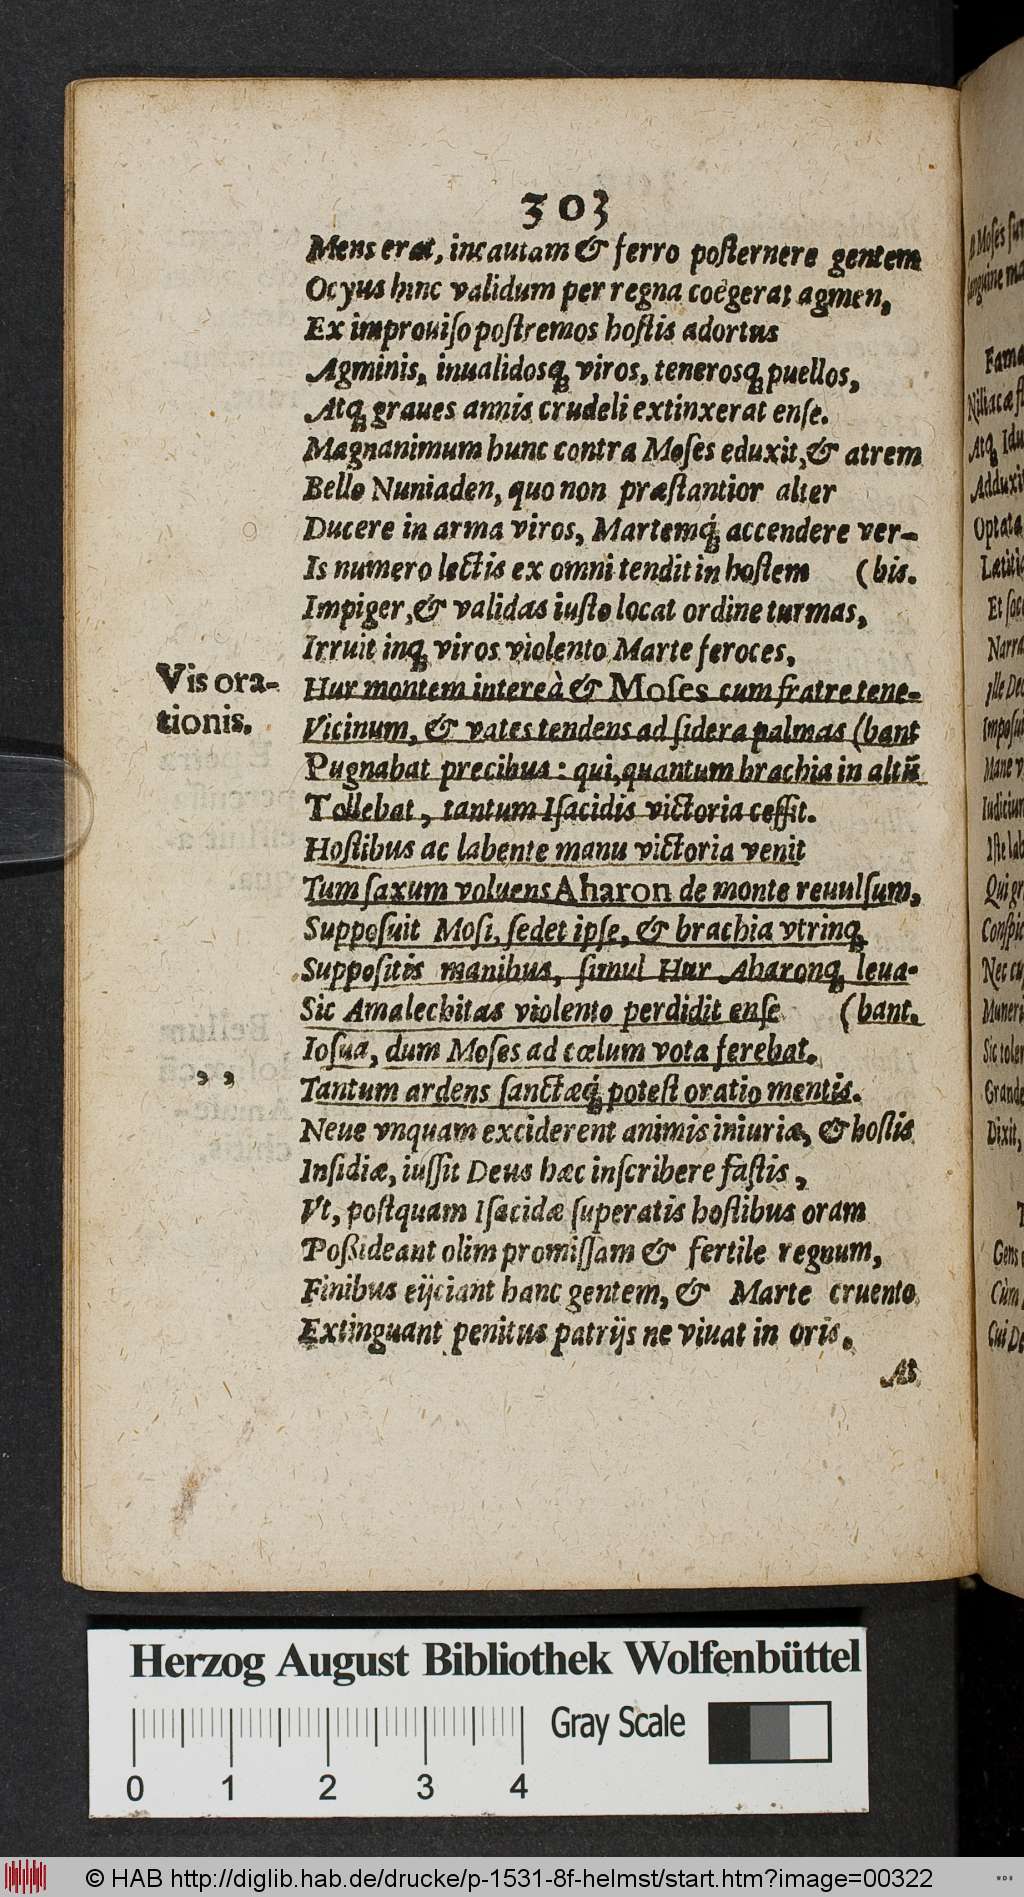 303
Mens erat, incautam & ferro posternere gentem
Ocyus hinc validum per regna coëgerat agmen,
Ex improuiſo poſtremos hoſtis adortus
Agminis, inualidosq́ viros, tenerosq́ puellos,
Atq́ graues annis crudeli extinxerat enſe.
Magnanimum hunc contra Moſes eduxit, & atrem
Bello Nuniaden, quo non præſtantior alter
Ducere in arma viros, Martemq́ accendere ver-
Is numero lectis ex omni tendit in hoſtem (bis.
Impiger, & validas iuſto locat ordine turmas,
Irruit inq́ viros violento Marte feroces,
Vis ora-
tionis.
Hur montem intereà & Moſes cum fratre tene-
Vicinum, & vates tendens ad ſidera palmas (bant
Pugnabat precibus: qui, quantum brachia in altũ
Tollebat, tantum Iſacidis victoria ceſſit.
Hoſtibus ac labente manu victoria venit
Tum ſaxum voluens Aharon de monte reuulſum,
Suppoſuit Moſi, ſedet ipſe, & brachia vtrinq́
Suppoſitis manibus, ſimul Hur Aharonq́ leua-
Sic Amalechitas violento perdidit enſe (bant.
Ioſua, dum Moſes ad cœlum vota ferebat.
,,
Tantum ardens ſanctæq́ poteſt oratio mentis.
Neue vnquam exciderent animis iniuriæ, & hoſtis
Inſidiæ, iuſſit Deus hæc inſcribere faſtis,
Vt, poſtquam Iſacidæ ſuperatis hoſtibus oram
Poßideant olim promiſſam & fertile regnum,
Finibus eijciant hanc gentem, & Marte cruento
Extinguant penitus patrijs ne viuat in oris.
At
Herzog August Bibliothek Wolfenbüttel
Gray Scale
0 1 2 3 4
© HAB http://diglib.hab.de/drucke/p-1531-8f-helmst/start.htm?image=00322